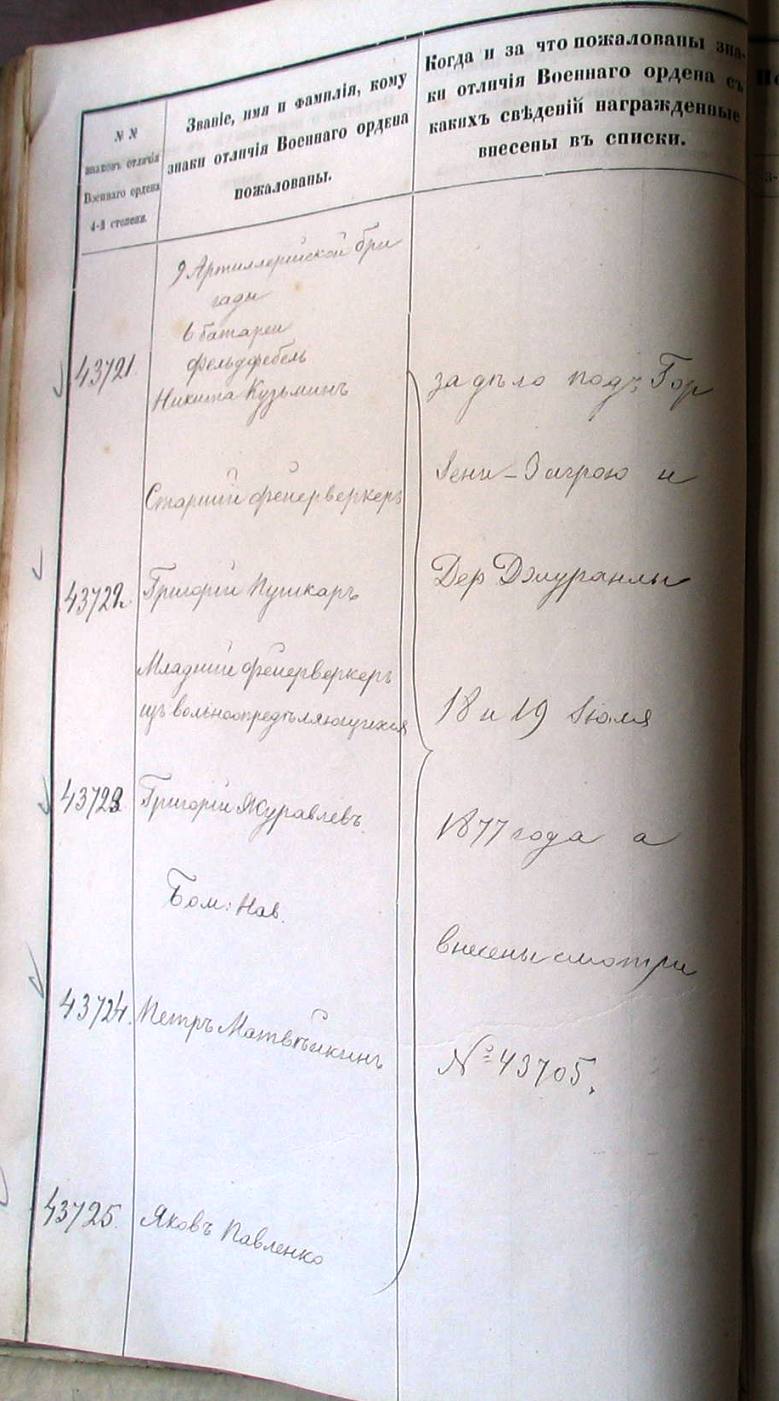 № №
знаковъ отличія
Военнаго ордена
4-й степени.
Званіе, имя и фамилія, кому
знаки отличія Военнаго ордена
пожалованы.
Когда и за что пожалованы зна-
ки отличія Военнаго ордена съ
какихъ свѣденій награжденные
внесены въ списки.
9 Артиллерійской бри
гады
6 батареи
фельдфебель
43721. Никита Кузьминъ
Старшій фейерверкеръ
43722. Григорій Пушкаръ
Младшій фейерверкеръ
изъ вольноопредѣляющихся
43723 Григорій Журавлевъ.
Бом: Нав.
43724. Петръ Матвѣйкинъ
43725. Яковъ Павленко
за дѣло подъ Гор
Іени-Загрою и
Дер Джуранлы
18 и 19 Іюля
1877 года а
внесены смотри
№ 43705.